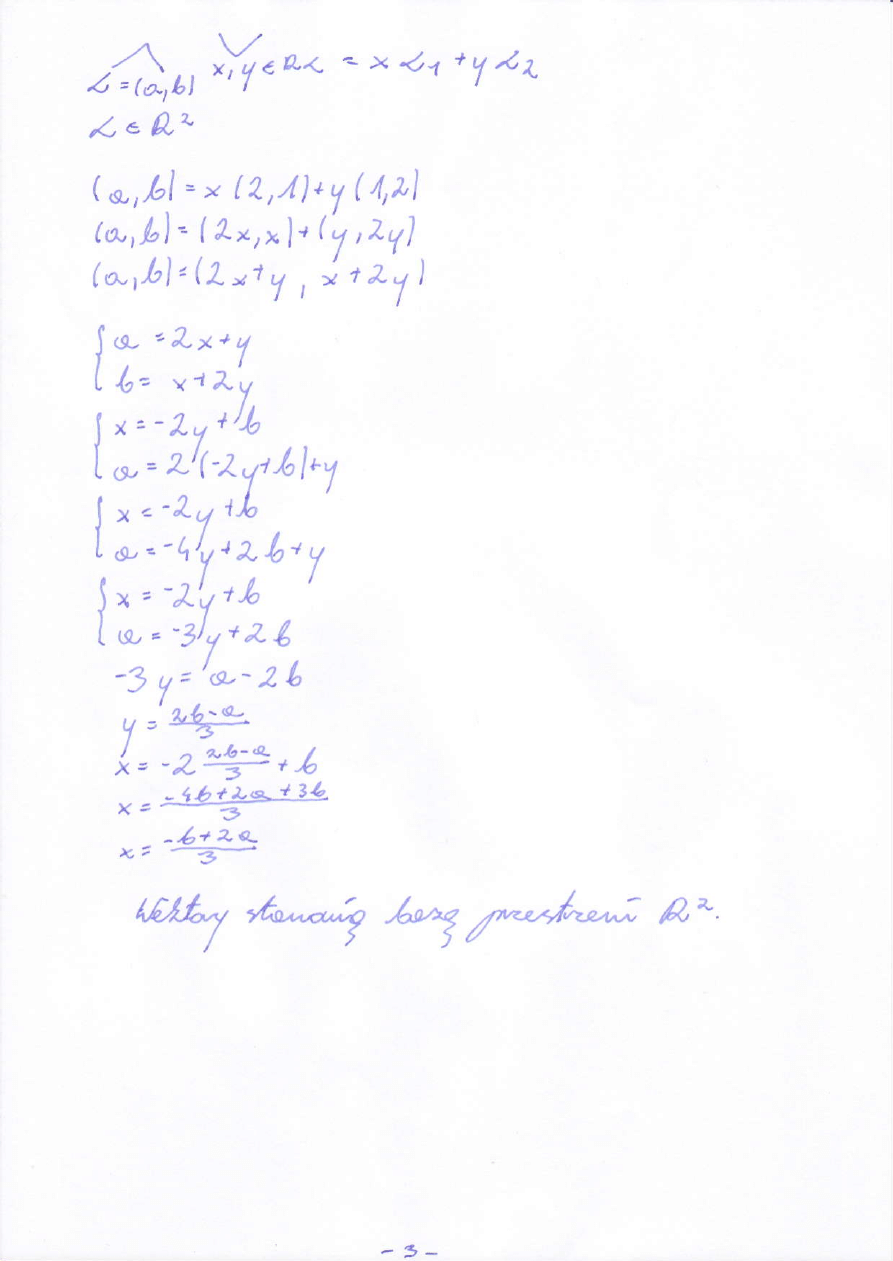 ⋀ ⋁
α=(a,b) x,y∈R α = x α1 + y α2
α ∈ R²
(a,b) = x (2,1) + y (1,2)
(a,b) = (2x,x) + (y,2y)
(a,b) = (2x+y, x+2y)
{ a = 2x+y
b = x+2y
{ x = -2y+b
a = 2(-2y+b)+y
{ x = -2y+b
a = -4y+2b+y
{ x = -2y+b
a = -3y+2b
-3y = a-2b
y = (2b-a)/3
x = -2 (2b-a)/3 + b
x = (-4b+2a+3b)/3
x = (-b+2a)/3
Wektory stanowią bazę przestrzeni R².
- 3 -